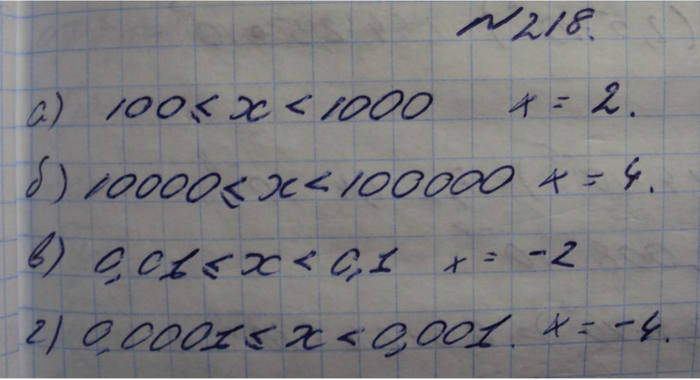 №218.
а) 100 ≤ x < 1000 x = 2.
б) 10000 ≤ x < 100000 x = 4.
в) 0,01 ≤ x < 0,1 x = -2
г) 0,0001 ≤ x < 0,001. x = -4.